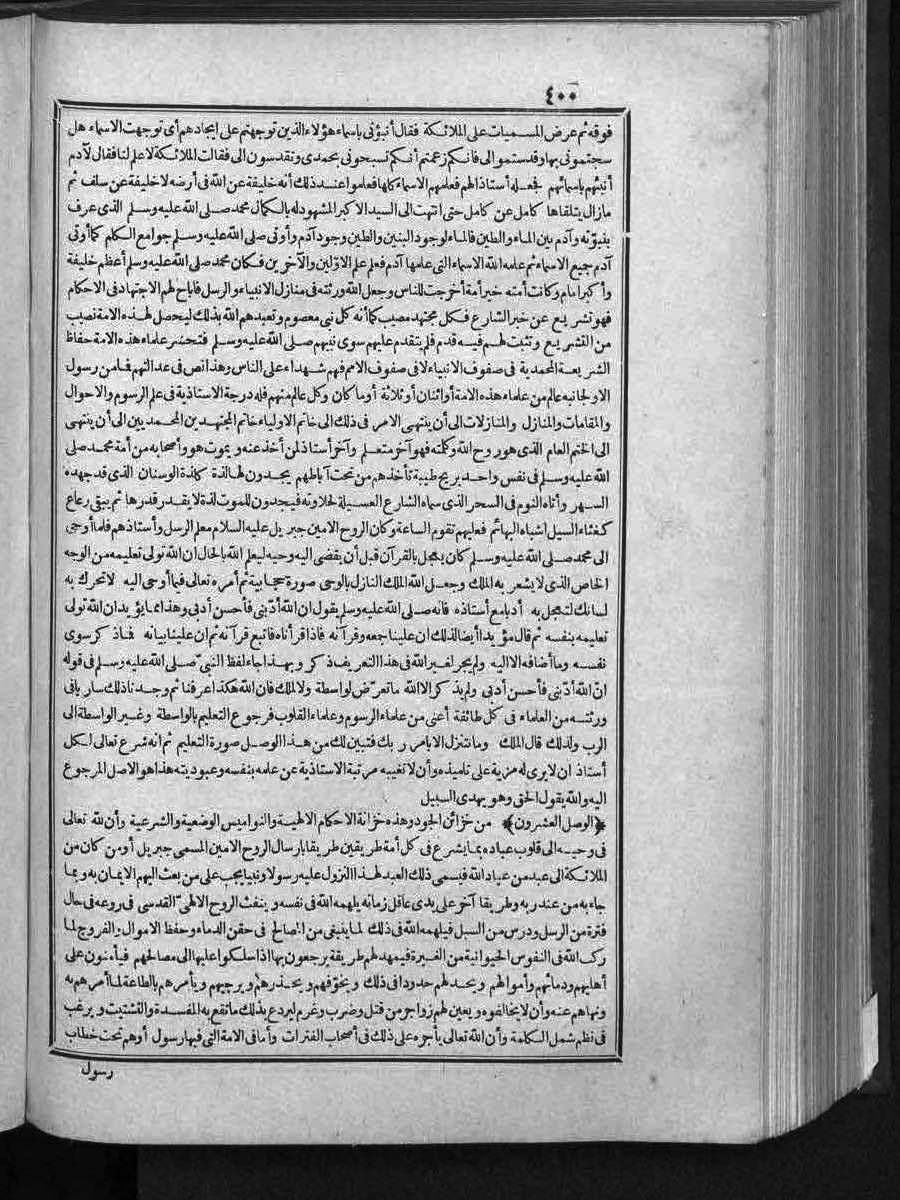 ٤٠٠
فوقه ثم عرض المسميات على الملائكة فقال أنبؤنى باسماء هؤلاء الذين توجهتم على ايجادهم أى توجهت الاسماء هل
سبحتمونى بها وقدستمو الى فانكم زعمتم أنكم تسبحونى بحمدى وتقدسون الى فقالت الملائكة لا علم لنا فقال لآدم
أنبئهم باسمائهم فجعله أستاذا لهم فعلمهم الاسماء كلها فعلموا عند ذلك أنه خليفة عن الله فى أرضه لا خليفة عن سلف ثم
ما زال يتلقاها كامل عن كامل حتى انتهت الى السيد الاكبر المشهود له بالكمال محمد صلى الله عليه وسلم الذى عرف
بنبوّته وآدم بين الماء والطين فالماء لوجود البنين والطين وجود آدم وأوتى صلى الله عليه وسلم جوامع الكلم كما أوتى
آدم جميع الاسماء ثم علمه الله الاسماء التى علمها آدم فعلم علم الاوّلين والآخرين فكان محمد صلى الله عليه وسلم أعظم خليفة
وأكبر امام وكانت أمته خير أمة أخرجت للناس وجعل الله ورثته فى منازل الانبياء والرسل فاباح لهم الاجتهاد فى الاحكام
فهو تشريع عن خبر الشارع فكل مجتهد مصيب كما أنه كل نبى معصوم وتعبدهم الله بذلك ليحصل لهذه الامة نصيب
من التشريع وتثبت لهم فيه قدم فلم يتقدم عليهم سوى نبيهم صلى الله عليه وسلم فتحشر علماء هذه الامة حفاظ
الشريعة المحمدية فى صفوف الانبياء لا فى صفوف الامم فهم شهداء على الناس وهذا نص فى عدالتهم فما من رسول
الا ولجانبه عالم من علماء هذه الامة أو اثنان أو ثلاثة أو ما كان وكل عالم منهم فله درجة الاستاذية فى علم الرسوم والاحوال
والمقامات والمنازل والمنازلات الى أن ينتهى الامر فى ذلك الى خاتم الاولياء خاتم المجتهدين المحمديين الى أن ينتهى
الى الختم العام الذى هو روح الله وكلمته فهو آخر متعلم وآخر أستاذ لمن أخذ عنه ويموت هو وأصحابه من أمة محمد صلى
الله عليه وسلم فى نفس واحد بريح طيبة تأخذهم من تحت آباطهم يجدون لها لذة كلذة الوسنان الذى قد جهده
السهر وأتاه النوم فى السحر الذى سماه الشارع العسيلة لحلاوته فيجدون للموت لذة لا يقدر قدرها ثم يبقى رعاع
كغثاء السيل اشباه البهائم فعليهم تقوم الساعة وكان الروح الامين جبريل عليه السلام معلم الرسل وأستاذهم فلما أوحى
الى محمد صلى الله عليه وسلم كان يعجل بالقرآن قبل أن يقضى اليه وحيه ليعلم الله بالحال ان الله تولى تعليمه من الوجه
الخاص الذى لا يشعر به الملك وجعل الله الملك النازل بالوحى صورة حجابية ثم أمره تعالى فيما أوحى اليه لا تحرك به
لسانك لتعجل به أدبا مع أستاذه فانه صلى الله عليه وسلم يقول ان الله أدّبنى فأحسن أدبى وهذا مما يؤيد ان الله تولى
تعليمه بنفسه ثم قال مؤيدا أيضا لذلك ان علينا جمعه وقرآنه فاذا قرأناه فاتبع قرآنه ثم ان علينا بيانه فما ذكر سوى
نفسه وما أضافه الا اليه ولم يجر لغير الله فى هذا التعريف ذكر وبهذا جاء لفظ النبىّ صلى الله عليه وسلم فى قوله
انّ الله أدّبنى فأحسن أدبى ولم يذكر الا الله ما تعرّض لواسطة ولا لملك فان الله هكذا عرفنا ثم وجدنا ذلك ساريا فى
ورثته من العلماء فى كل طائفة أعنى من علماء الرسوم وعلماء القلوب فرجوع التعليم بالواسطة وغير الواسطة الى
الرب ولذلك قال الملك وما نتنزل الا بامر ربك فتبين لك من هذا الوصل صورة التعليم ثم انه شرع تعالى لكل
أستاذ ان لا يرى له مزية على تلميذه وأن لا تغيبه مرتبة الاستاذية عن علمه بنفسه وعبوديته هذا هو الاصل المرجوع
اليه والله يقول الحق وهو يهدى السبيل
﴿الوصل العشرون﴾ من خزائن الجود وهذه خزانة الاحكام الالهية والنواميس الوضعية والشرعية وأن لله تعالى
فى وحيه الى قلوب عباده بما يشرع فى كل أمة طريقين طريقا بارسال الروح الامين المسمى جبريل أو من كان من
الملائكة الى عبد من عباد الله فيسمى ذلك العبد لهذا النزول عليه رسولا ونبيا يجب على من بعث اليهم الايمان به وبما
جاء به من عند ربه وطريقا آخر على يدى عاقل زمانه يلهمه الله فى نفسه وينفث الروح الالهىّ القدسى فى روعه فى حال
فترة من الرسل ودرس من السبل فيلهمه الله فى ذلك لما ينبغى من المصالح فى حقن الدماء وحفظ الاموال والفروج لما
ركب الله فى النفوس الحيوانية من الغيرة فيمهد لهم طريقة يرجعون بها اذا سلكوا عليها الى مصالحهم فيأمنون على
أهليهم ودمائهم وأموالهم ويحد لهم حدودا فى ذلك ويخوّفهم ويحذرهم ويرجيهم ويأمرهم بالطاعة لما أمرهم به
ونهاهم عنه وأن لا يخالفوه ويعين لهم زواجر من قتل وضرب وغرم ليردع بذلك ما تقع به المفسدة والتشتيت ويرغب
فى نظم شمل الكلمة وأن الله تعالى يأجره على ذلك فى أصحاب الفترات وأما فى الامة التى فيها رسول أو هم تحت خطاب
رسول